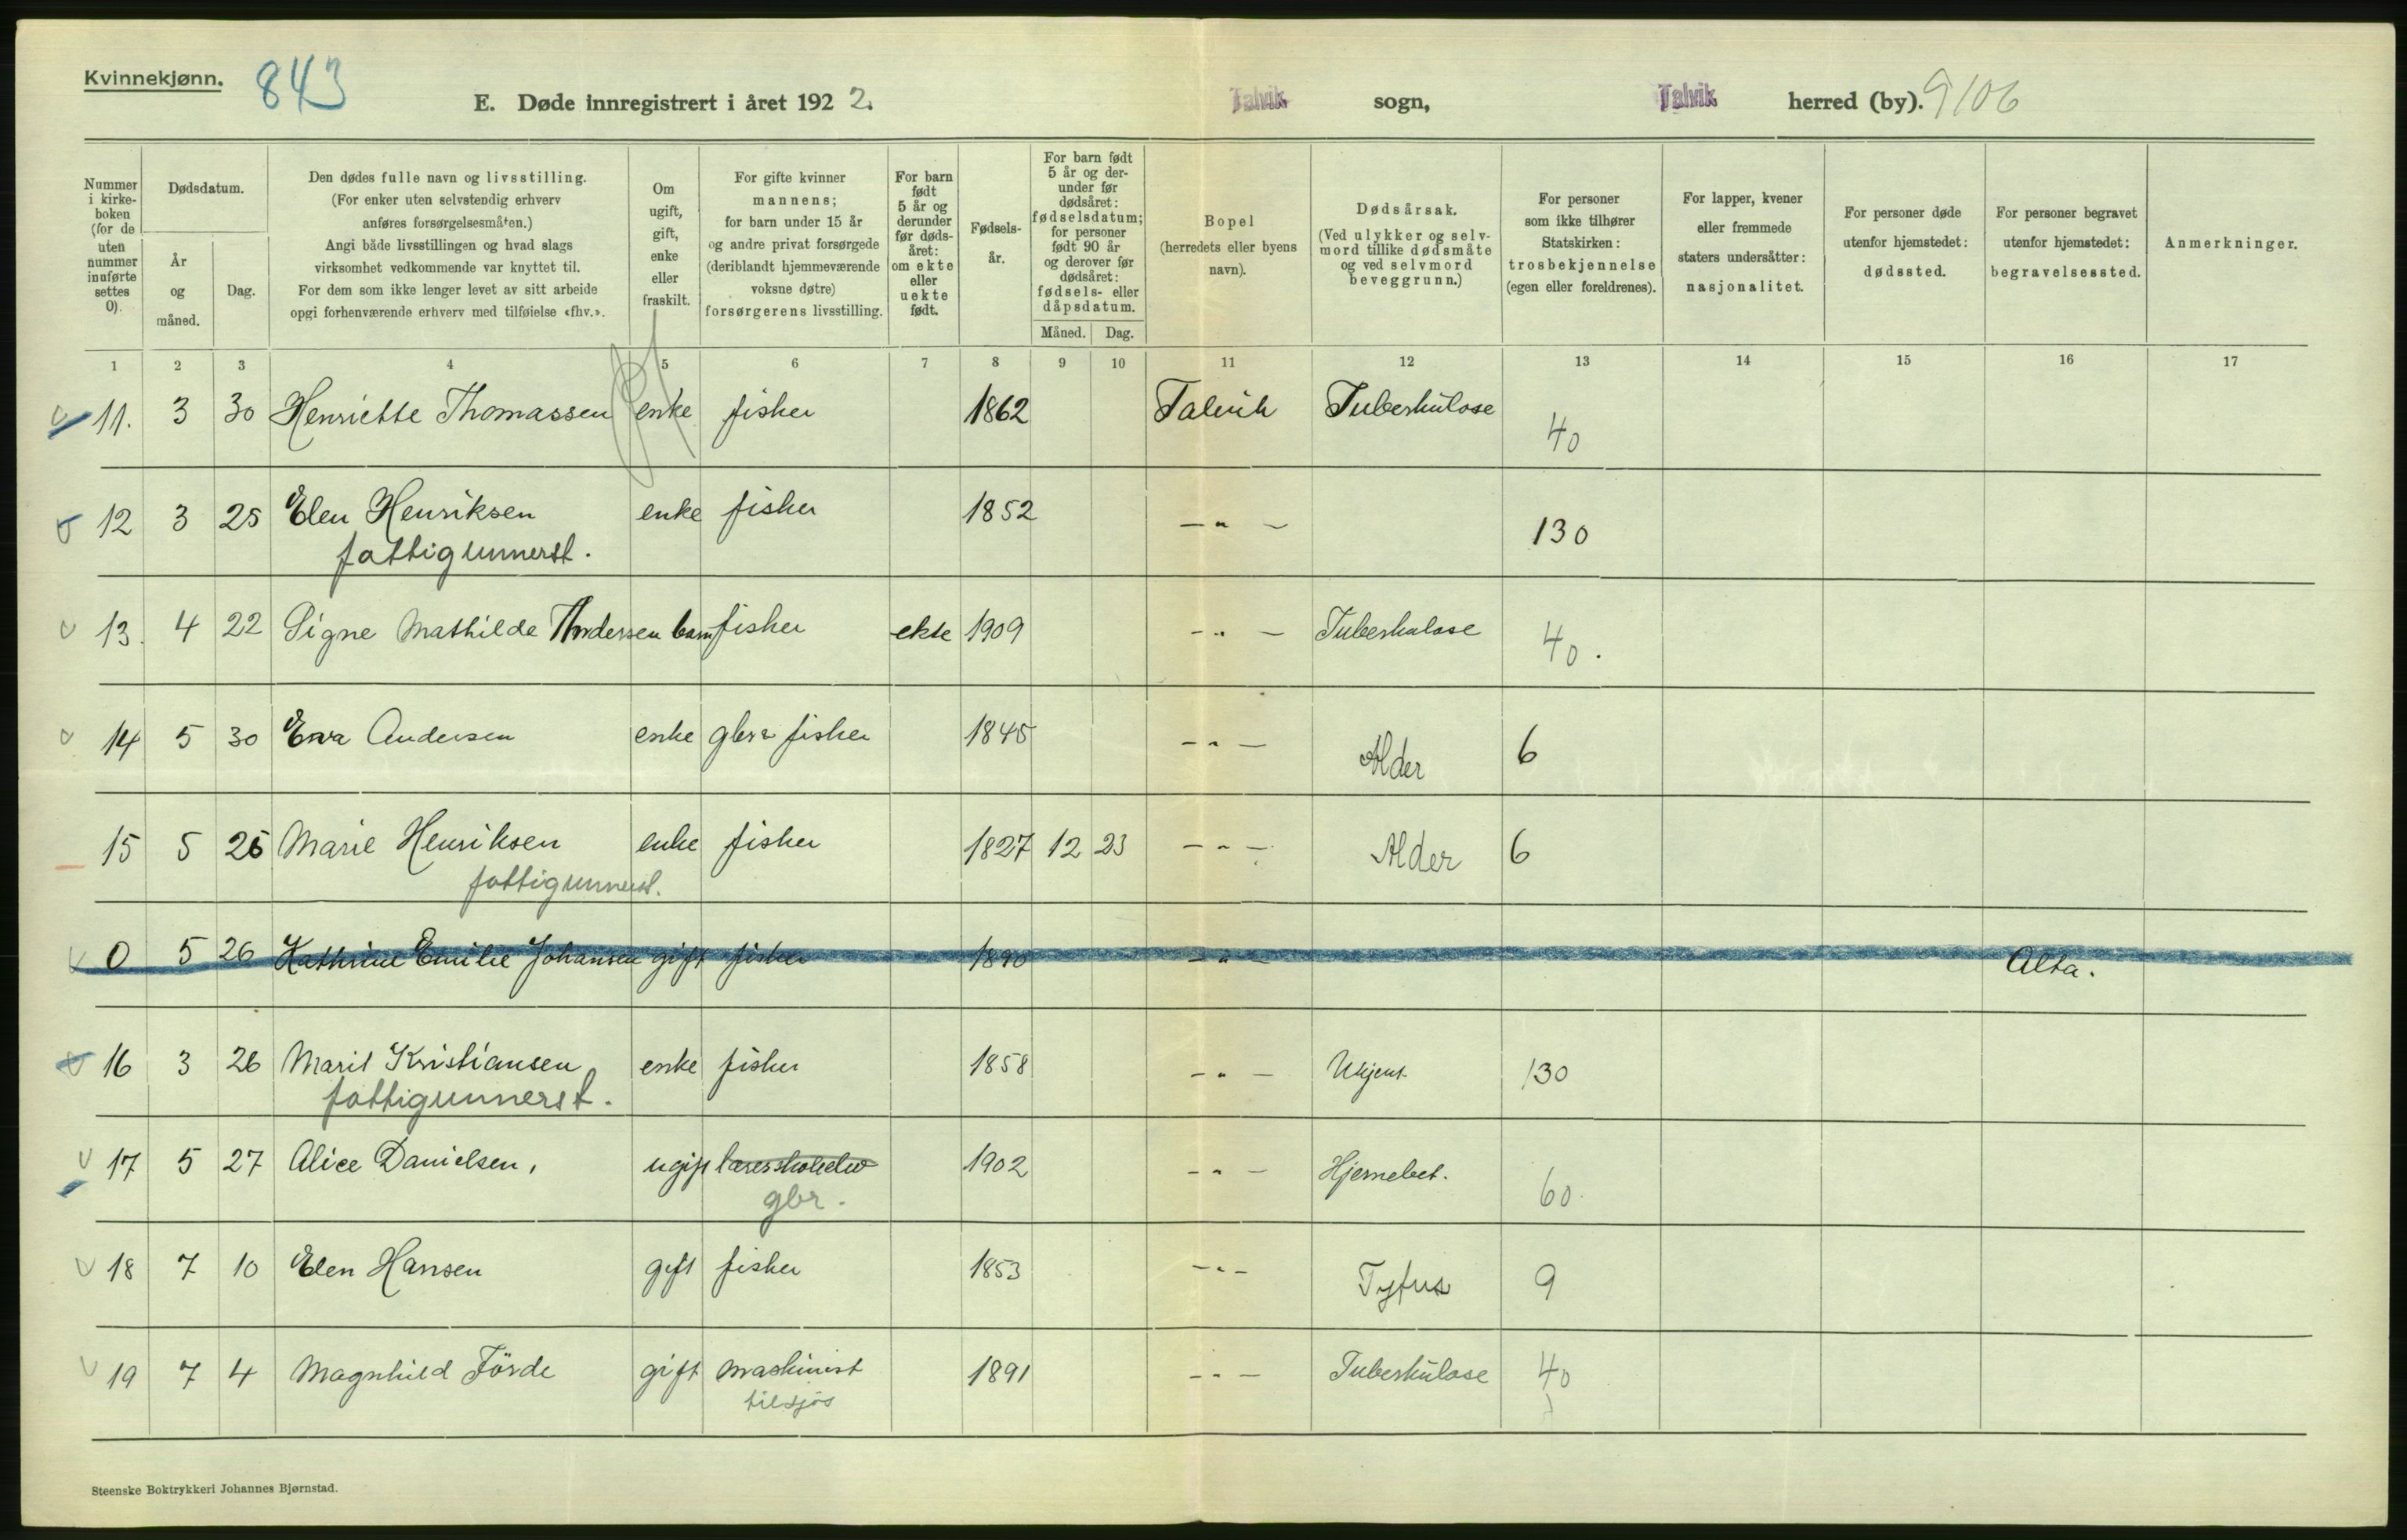 Kvinnekjønn. 843
E. Døde innregistrert i året 192 2. Talvik sogn, Talvik herred (by). 9106
Nummer i kirke- boken (for de uten nummer innførte settes 0).
Dødsdatum.
År og måned.
Dag.
Den dødes fulle navn og livsstilling.
(For enker uten selvstendig erhverv
anføres forsørgelsesmåten.)
Angi både livsstillingen og hvad slags
virksomhet vedkommende var knyttet til.
For dem som ikke lenger levet av sitt arbeide
opgi forhenværende erhverv med tilføielse «fhv.».
Om ugift, gift, enke eller fraskilt.
For gifte kvinner
mannens;
for barn under 15 år
og andre privat forsørgede
(deriblandt hjemmeværende
voksne døtre)
forsørgerens livsstilling.
For barn født 5 år og derunder før døds- året: om ekte eller uekte født.
Fødsels- år.
For barn født 5 år og der- under før dødsåret: fødselsdatum; for personer født 90 år og derover før dødsåret: fødsels- eller dåpsdatum.
Måned. Dag.
Bopel
(herredets eller byens
navn).
Dødsårsak.
(Ved ulykker og selv-
mord tillike dødsmåte
og ved selvmord
beveggrunn.)
For personer
som ikke tilhører
Statskirken:
trosbekjennelse
(egen eller foreldrenes).
For lapper, kvener
eller fremmede
staters undersåtter:
nasjonalitet.
For personer døde
utenfor hjemstedet:
dødssted.
For personer begravet
utenfor hjemstedet:
begravelsessted.
Anmerkninger.
1 2 3 4 5 6 7 8 9 10 11 12 13 14 15 16 17
11. 3 30 Henriette Thomassen enke fisker 1862 Talvik Tuberkulose 40
12 3 25 Elen Henriksen enke fisker 1852 — " — 130
fattigunnerst.
13. 4 22 Signe Mathilde Andersen barn fisker ekte 1909 — " — Tuberkulose 40.
14 5 30 Ewa Andersen enke gbr& fisker 1845 — " — Alder 6
15 5 25 Marie Henriksen enke fisker 1827 12 23 — " — Alder 6
fattigunnerst.
0 5 26 Kathrine Emilie Johansen gift fisker 1890 — " — Alta.
16 3 26 Marit Kristiansen enke fisker 1858 — " — Ukjent 130
fattigunnerst.
17 5 27 Alice Danielsen, ugift lærerskoleelev 1902 — " — Hjernebet. 60
gbr.
18 7 10 Elen Hansen gift fisker 1853 — " — Tyfus 9
19 7 4 Magnhild Förde gift maskinist 1891 — " — Tuberkulose 40
tilsjøs
Steenske Boktrykkeri Johannes Bjørnstad.